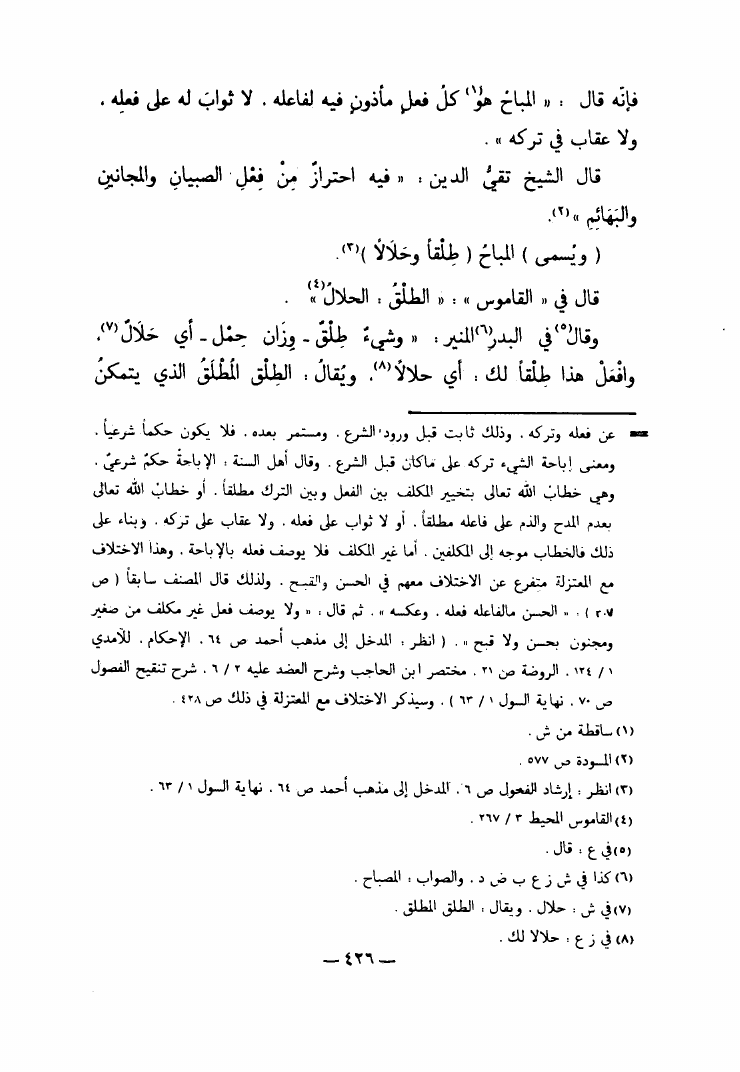 فإنّه قال : « المباحُ هو(١) كلُ فعلٍ مأذونٍ فيه لفاعله . لا ثوابَ له على فعلِه ،
ولا عقاب في تركه » .
قال الشيخ تقيُّ الدين : « فيه احترازٌ مِنْ فِعْلِ الصبيانِ والمجانينِ
والبَهَائِمِ »(٢).
( ويُسمى ) المباحُ ( طِلْقاً وحَلَالاً )(٣).
قال في « القاموس » : « الطلْقُ : الحلالُ »(٤) .
وقال(٥) في البدر(٦) المنير : « وشيءٌ طِلْقٌ ـ وِزَان حِمْل ـ أي حَلَالٌ(٧)،
وافْعَلْ هذا طِلْقاً لك : أي حلالاً(٨). ويُقالُ : الطِلْق المُطْلَقُ الذي يتمكنُ
= عن فعله وتركه . وذلك ثابت قبل ورود الشرع . ومستمر بعده . فلا يكون حكماً شرعياً .
ومعنى إباحة الشيء تركه على ماكان قبل الشرع . وقال أهل السنة : الإباحةُ حكمٌ شرعيٌ .
وهي خطابُ الله تعالى بتخيير المكلف بين الفعل وبين الترك مطلقاً . أو خطابُ الله تعالى
بعدم المدح والذم على فاعله مطلقاً . أو لا ثواب على فعله . ولا عقاب على تركه . وبناء على
ذلك فالخطاب موجه إلى المكلفين . أما غير المكلف فلا يوصف فعله بالإباحة . وهذا الاختلاف
مع المعتزلة متفرع عن الاختلاف معهم في الحسن والقبح . ولذلك قال المصنف سابقاً ( ص
٣٠٧ ) : « الحسن مالفاعله فعله . وعكسه » . ثم قال : « ولا يوصف فعل غير مكلف من صغير
ومجنون بحسن ولا قبح » . ( انظر : المدخل إلى مذهب أحمد ص ٦٤ . الإحكام . للآمدي
١ / ١٢٤ . الروضة ص ٢١ . مختصر ابن الحاجب وشرح العضد عليه ٢ / ٦ . شرح تنقيح الفصول
ص ٧٠ . نهاية السول ١ / ٦٣ ) . وسيذكر الاختلاف مع المعتزلة في ذلك ص ٤٢٨ .
(١) ساقطة من ش .
(٢) المسودة ص ٥٧٧ .
(٣) انظر : إرشاد الفحول ص ٦ . المدخل إلى مذهب أحمد ص ٦٤ . نهاية السول ١ / ٦٣ .
(٤) القاموس المحيط ٣ / ٢٦٧ .
(٥) في ع : قال .
(٦) كذا في ش ز ع ب ض د . والصواب : المصباح .
(٧) في ش : حلال . ويقال : الطلق المطلق .
(٨) في ز ع : حلالا لك .
— ٤٢٦ —